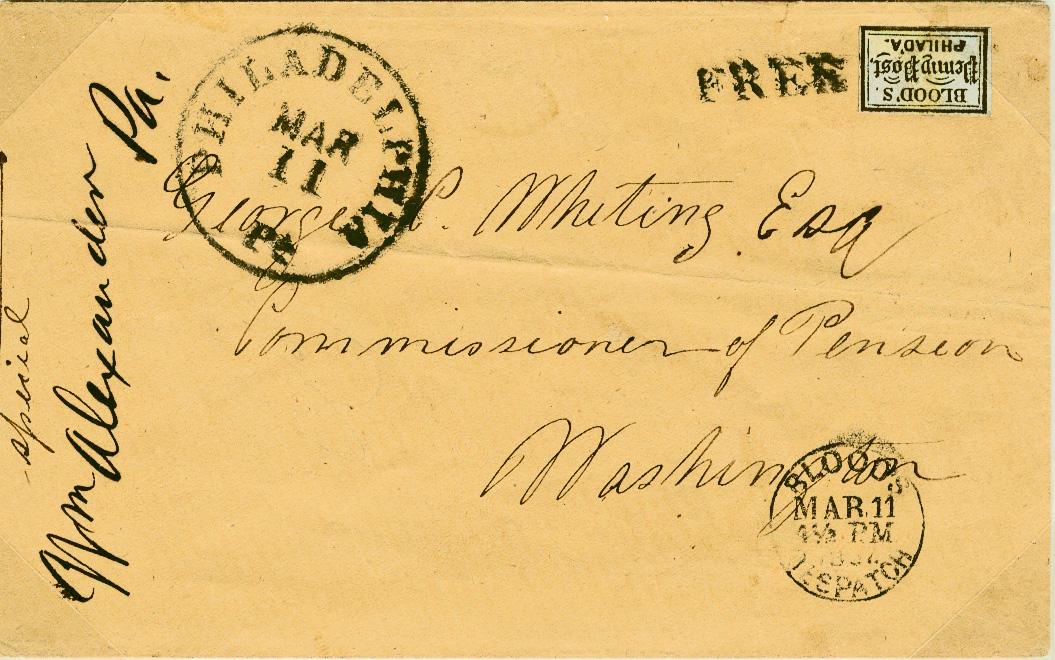 PHILADELPHIA
MAR
11
Pa
FREE
BLOOD'S
Penny Post.
PHILAD'A.
George P. Whiting Esq
Commissioner of Pension
Washington
BLOOD'S
MAR. 11
4½ P.M
DESPATCH
special
Wm Alexander Pa.